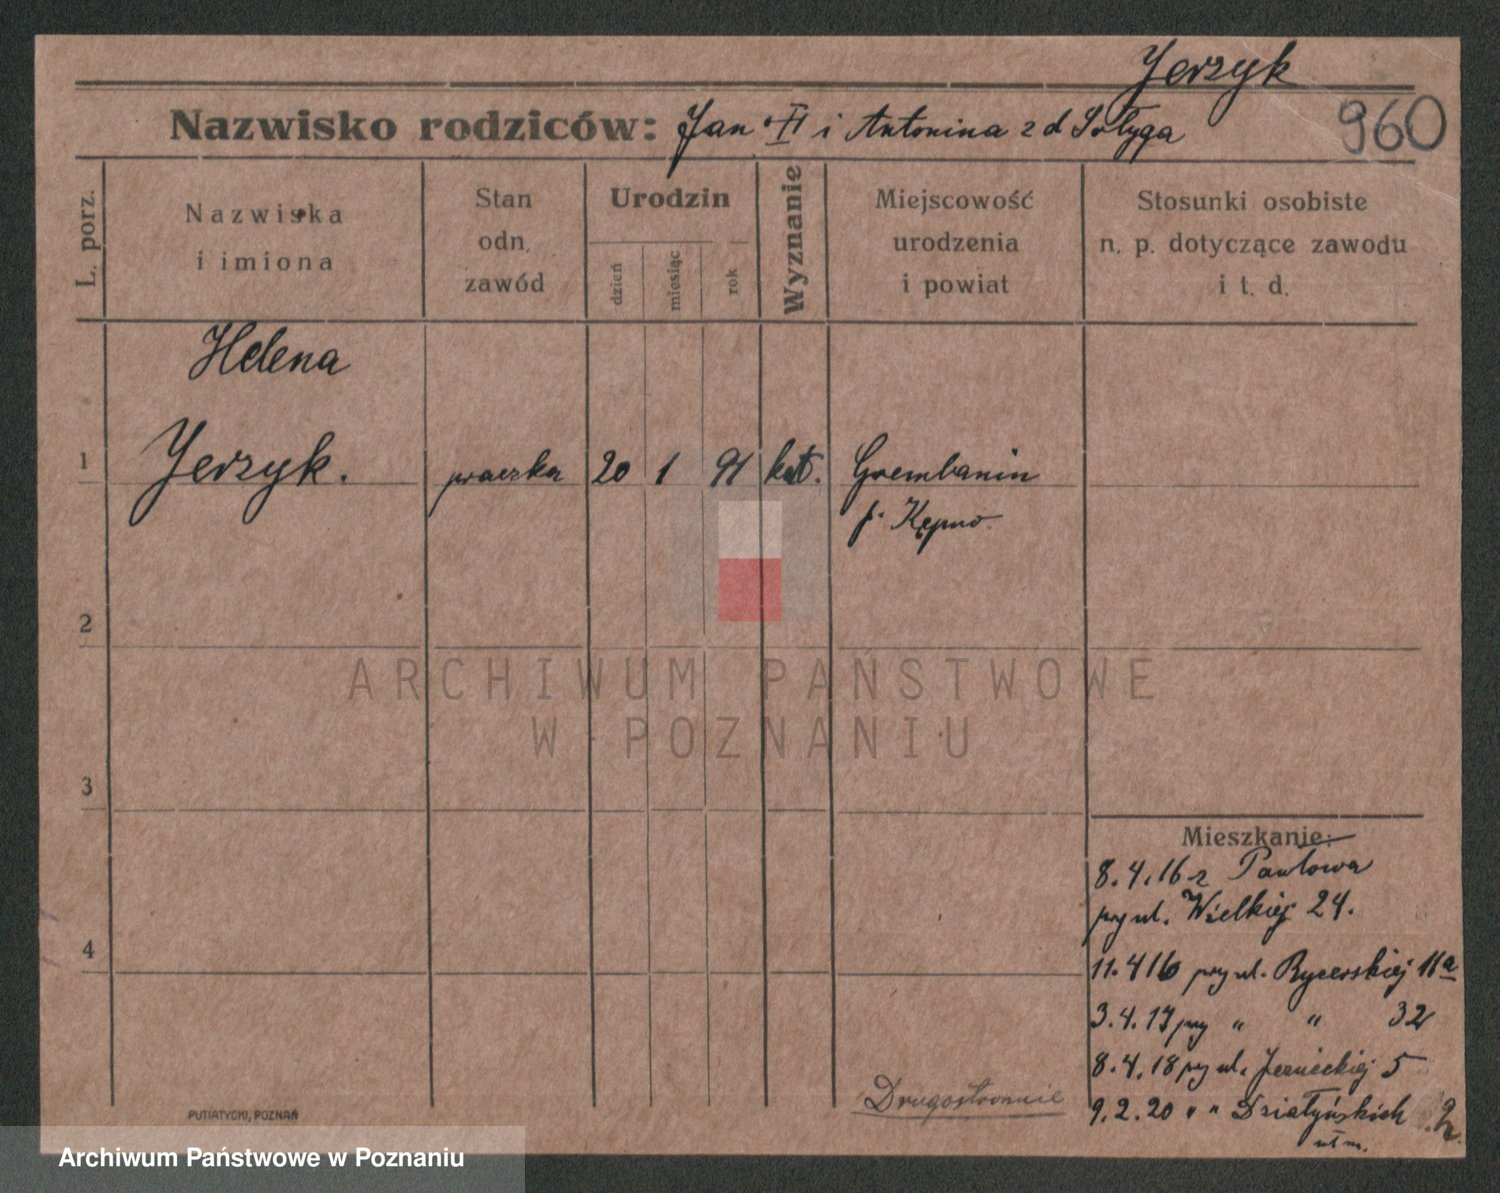 Jerzyk
Nazwisko rodziców: Jan II i Antonina z d Sołyga
960
L. porz.
Nazwiska
i imiona
Stan
odn.
zawód
Urodzin
dzień
miesiąc
rok
Wyznanie
Miejscowość
urodzenia
i powiat
Stosunki osobiste
n. p. dotyczące zawodu
i t. d.
Helena
1 Jerzyk. praczka 20 1 91 kat. Grembanin
p. Kępno.
2
3
4
Mieszkanie:
8.4.16 z Pawłowa
przy ul. Wielkiej 24.
11.4 16 przy ul. Rycerskiej 11a
3.4.17 przy " " 32
8.4.18 przy ul. 5
9.2.20 " " Działyńskich
Drugostronnie
PUTIATYCKI, POZNAŃ
ARCHIWUM PAŃSTWOWE
W POZNANIU
Archiwum Państwowe w Poznaniu